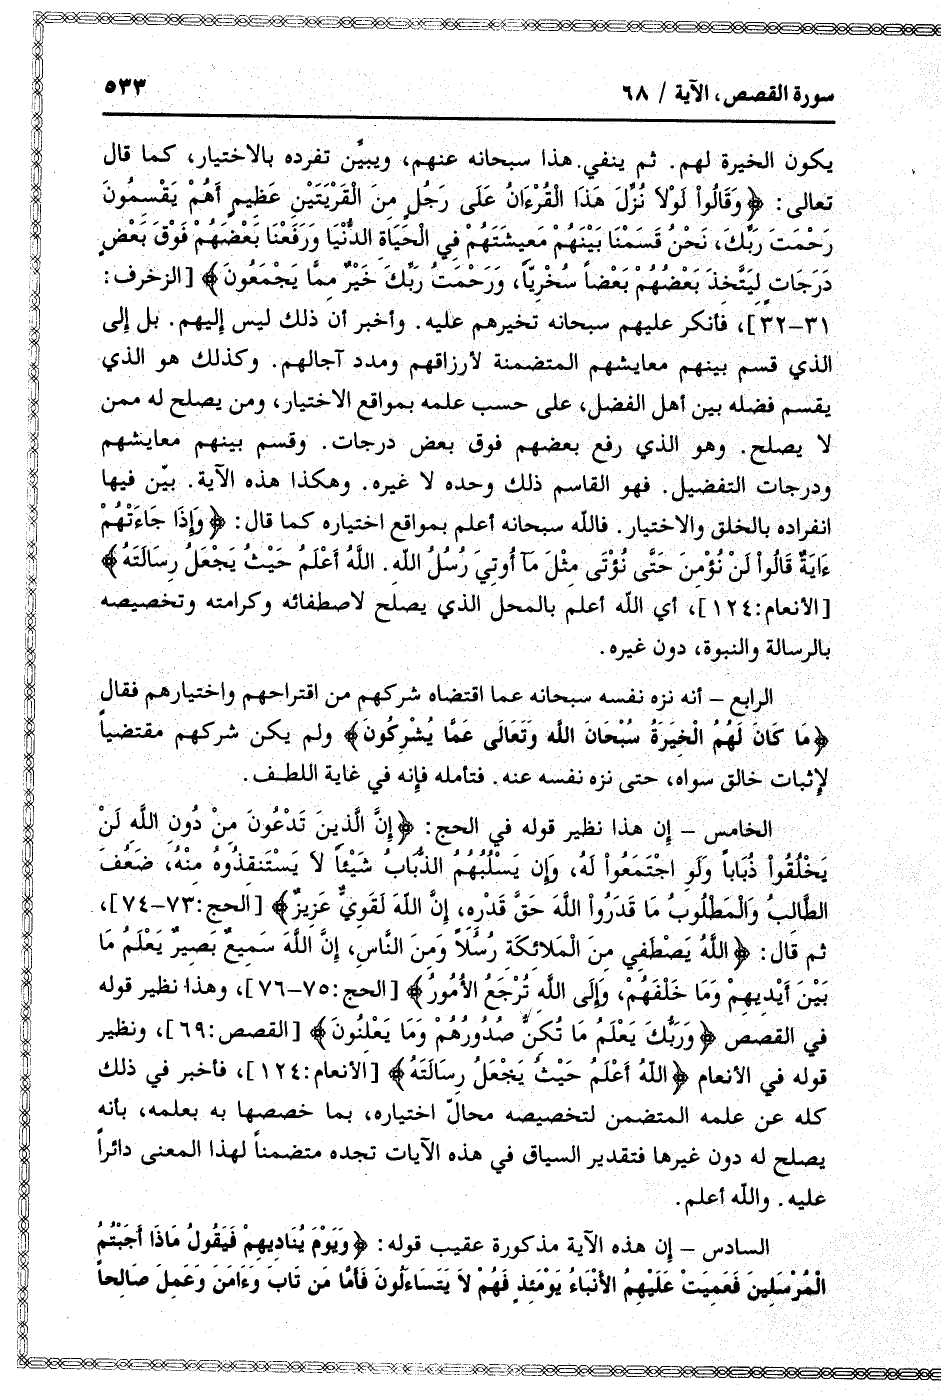 سورة القصص، الآية / ٦٨
٥٣٣
يكون الخيرة لهم. ثم ينفي هذا سبحانه عنهم، ويبيَّن تفرده بالاختيار، كما قال
تعالى: ﴿وَقَالُواْ لَوْلاَ نُزِّلَ هَذَا الْقُرْءَانُ عَلَى رَجُلٍ مِنَ الْقَرْيَتَيْنِ عَظِيمٍ أَهُمْ يَقْسِمُونَ
رَحْمَتَ رَبِّكَ، نَحْنُ قَسَمْنَا بَيْنَهُمْ مَعِيشَتَهُمْ فِي الْحَيَاةِ الدُّنْيَا وَرَفَعْنَا بَعْضَهُمْ فَوْقَ بَعْضٍ
دَرَجَاتٍ لِيَتَّخِذَ بَعْضُهُمْ بَعْضاً سُخْرِيّاً، وَرَحْمَتُ رَبِّكَ خَيْرٌ مِمَّا يَجْمَعُونَ﴾ [الزخرف:
٣١–٣٢]، فأنكر عليهم سبحانه تخيرهم عليه. وأخبر أن ذلك ليس إليهم. بل إلى
الذي قسم بينهم معايشهم المتضمنة لأرزاقهم ومدد آجالهم. وكذلك هو الذي
يقسم فضله بين أهل الفضل، على حسب علمه بمواقع الاختيار، ومن يصلح له ممن
لا يصلح. وهو الذي رفع بعضهم فوق بعض درجات. وقسم بينهم معايشهم
ودرجات التفضيل. فهو القاسم ذلك وحده لا غيره. وهكذا هذه الآية. بيّن فيها
انفراده بالخلق والاختيار. فالله سبحانه أعلم بمواقع اختياره كما قال: ﴿وَإِذَا جَاءَتْهُمْ
ءَايَةٌ قَالُواْ لَنْ نُؤْمِنَ حَتَّى نُؤْتَى مِثْلَ مَآ أُوتِيَ رُسُلُ اللّهِ. اللَّهُ أَعْلَمُ حَيْثُ يَجْعَلُ رِسَالَتَهُ﴾
[الأنعام:١٢٤]، أي اللّه أعلم بالمحل الذي يصلح لاصطفائه وكرامته وتخصيصه
بالرسالة والنبوة، دون غيره.
الرابع – أنه نزه نفسه سبحانه عما اقتضاه شركهم من اقتراحهم واختيارهم فقال
﴿مَا كَانَ لَهُمُ الْخِيَرَةُ سُبْحَانَ اللّه وَتَعَالَى عَمَّا يُشْرِكُونَ﴾ ولم يكن شركهم مقتضياً
لإثبات خالق سواه، حتى نزه نفسه عنه. فتأمله فإنه في غاية اللطف.
الخامس – إن هذا نظير قوله في الحج: ﴿إِنَّ الَّذِينَ تَدْعُونَ مِنْ دُونِ اللَّهِ لَنْ
يَخْلُقُواْ ذُبَاباً وَلَوِ اجْتَمَعُواْ لَهُ، وَإِن يَسْلُبْهُمُ الذُّبَابُ شَيْئاً لاَ يَسْتَنقِذُوهُ مِنْهُ، ضَعُفَ
الطَّالِبُ وَالْمَطْلُوبُ مَا قَدَرُواْ اللَّهَ حَقَّ قَدْرِهِ، إِنَّ اللّهَ لَقَوِيٌّ عَزِيزٌ﴾ [الحج:٧٣–٧٤]،
ثم قال: ﴿اللَّهُ يَصْطَفِي مِنَ الْمَلائِكَةِ رُسُلاً وَمِنَ النَّاسِ، إِنَّ اللَّهَ سَمِيعٌ بَصِيرٌ يَعْلَمُ مَا
بَيْنَ أَيْدِيهِمْ وَمَا خَلْفَهُمْ، وَإِلَى اللَّهِ تُرْجَعُ الأُمُورُ﴾ [الحج:٧٥–٧٦]، وهذا نظير قوله
في القصص ﴿وَرَبُّكَ يَعْلَمُ مَا تُكِنُّ صُدُورُهُمْ وَمَا يَعْلِنُونَ﴾ [القصص:٦٩]، ونظير
قوله في الأنعام ﴿اللّهُ أَعْلَمُ حَيْثُ يَجْعَلُ رِسَالَتَهُ﴾ [الأنعام:١٢٤]، فأخبر في ذلك
كله عن علمه المتضمن لتخصيصه محالّ اختياره، بما خصصها به بعلمه، بأنه
يصلح له دون غيرها فتقدير السياق في هذه الآيات تجده متضمناً لهذا المعنى دائراً
عليه. واللّه أعلم.
السادس – إن هذه الآية مذكورة عقيب قوله: ﴿وَيَوْمَ يُنَادِيهِمْ فَيَقُولُ مَاذَا أَجَبْتُمُ
الْمُرْسَلِينَ فَعَمِيَتْ عَلَيْهِمُ الأَنْبَاءُ يَوْمَئِذٍ فَهُمْ لاَ يَتَسَاءَلُونَ فَأَمَّا مَن تَابَ وَءَامَنَ وَعَمِلَ صَالِحاً